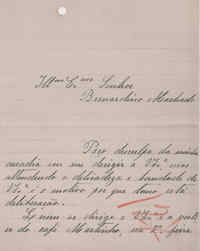 Illmo Exmo Senhor
Bernardino Machado
Peço desculpa da minha
ousadia em me dirigir a V. Exa mas
attendendo a delicadeza e bondade de
V. Exa é o motivo por que tomo esta
deliberação.
Eu me dirige a
do café Martinho, na 2ª feira